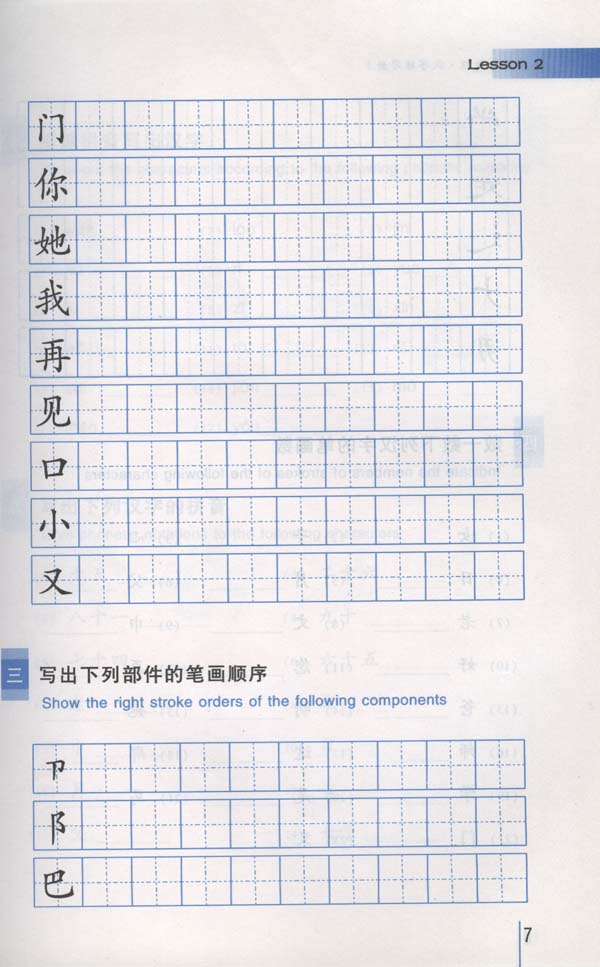 Lesson 2
门
你
她
我
再
见
口
小
又
三 写出下列部件的笔画顺序
Show the right stroke orders of the following components
卩
阝
巴
7